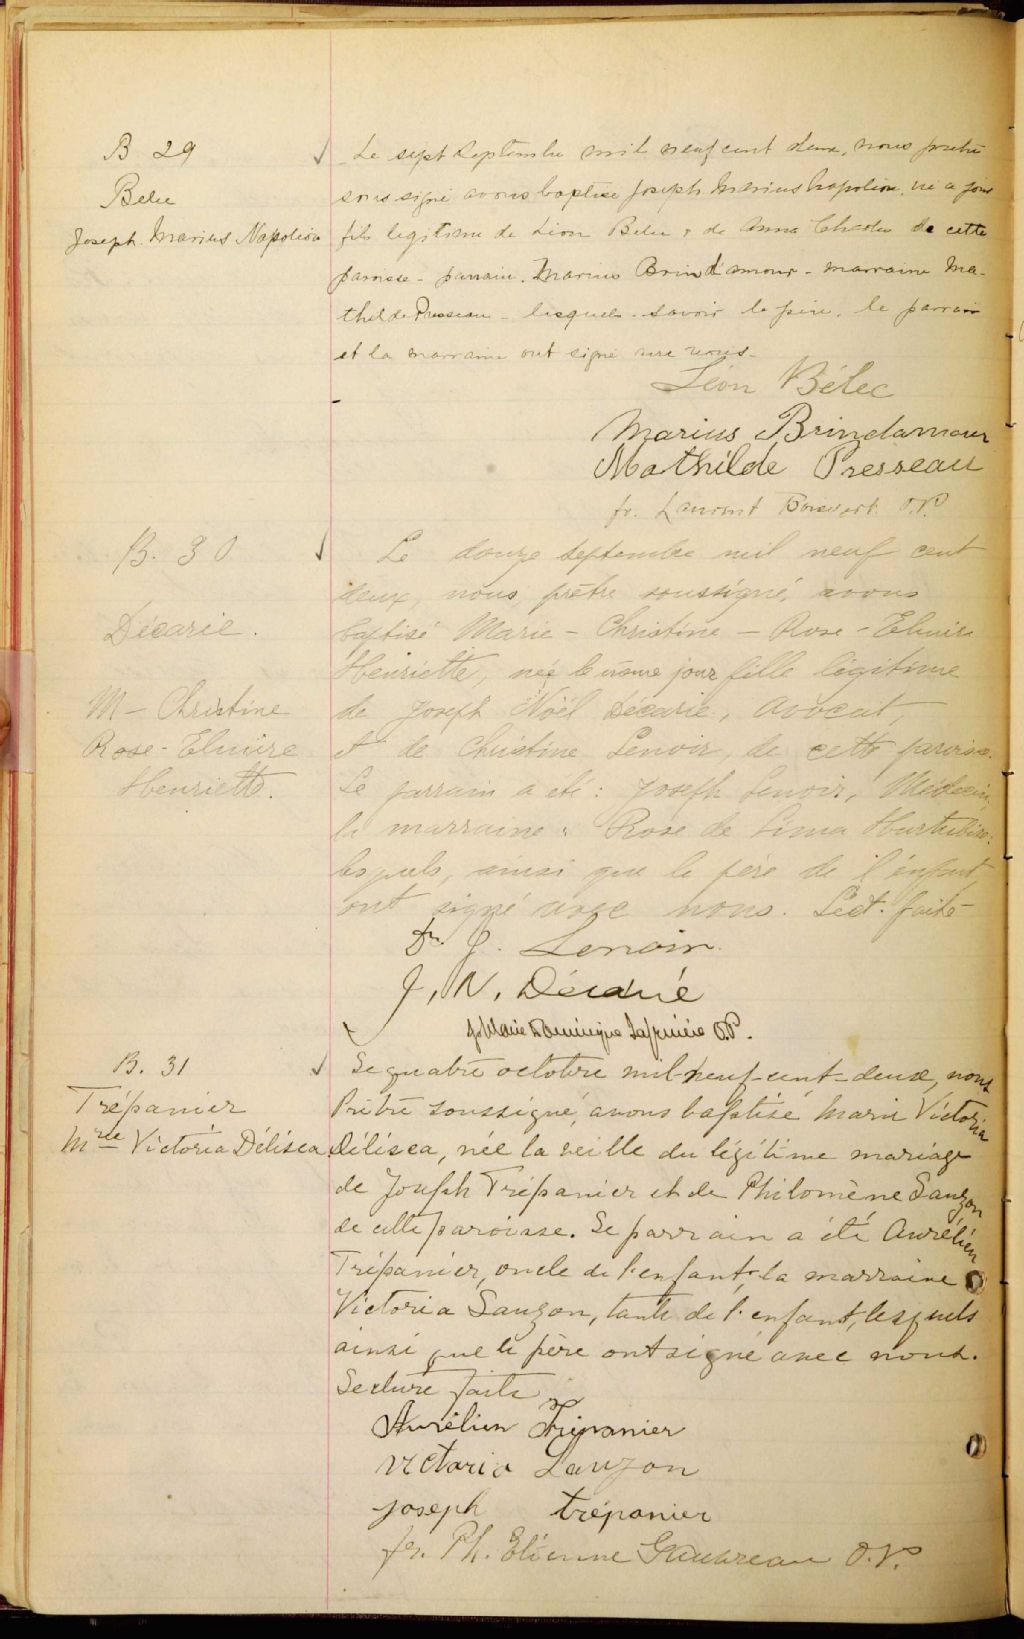 B 29
Belec
Joseph Marius Napoléon
Le sept Septembre mil neuf cent deux, nous prêtre
soussigné avons baptisé Joseph Marius Napoléon, né a jour
fils légitime de Léon Belec & de Anna Charles de cette
paroisse - parrain. Marius Brind'amour - marraine Ma-
thilde Presseau - lesquels - savoir le père, le parrain
et la marraine ont signé avec nous -
Léon Bélec
Marius Brindamour
Mathilde Presseau
fr. Laurent Boisvert O.P.
B. 30
Décarie.
M - Christine
Rose - Elmire
Henriette.
Le douze septembre mil neuf cent
deux, nous, prêtre soussigné, avons
baptisé Marie - Christine - Rose - Elmire
Henriette, née le même jour fille légitime
de Joseph Noël Décarie, Avocat,
& de Christine Lenoir, de cette paroisse.
Le parrain a été : Joseph Lenoir, Médecin,
la marraine : Rose de Lima Hurtubise:
lesquels, ainsi que le père de l'enfant,
ont signé avec nous. Lect. faite
Dr. J. Lenoir
J. N. Décarie
fr. Marie Dominique O.P.
B. 31
Trépanier
Mrie Victoria Délisca
Le quatre octobre mil-neuf-cent-deux, nous
Prêtre soussigné, avons baptisé Marie Victoria
Délisca, née la veille du légitime mariage
de Joseph Trépanier et de Philomène Lauzon
de cette paroisse. Le parrain a été Aurélien
Trépanier, oncle de l'enfant, la marraine
Victoria Lauzon, tante de l'enfant, lesquels
ainsi que le père ont signé avec nous.
Lecture faite
Aurélien Trépanier
Victoria Lauzon
Joseph trépanier
fr. Ph. Etienne Gauvreau O.P.